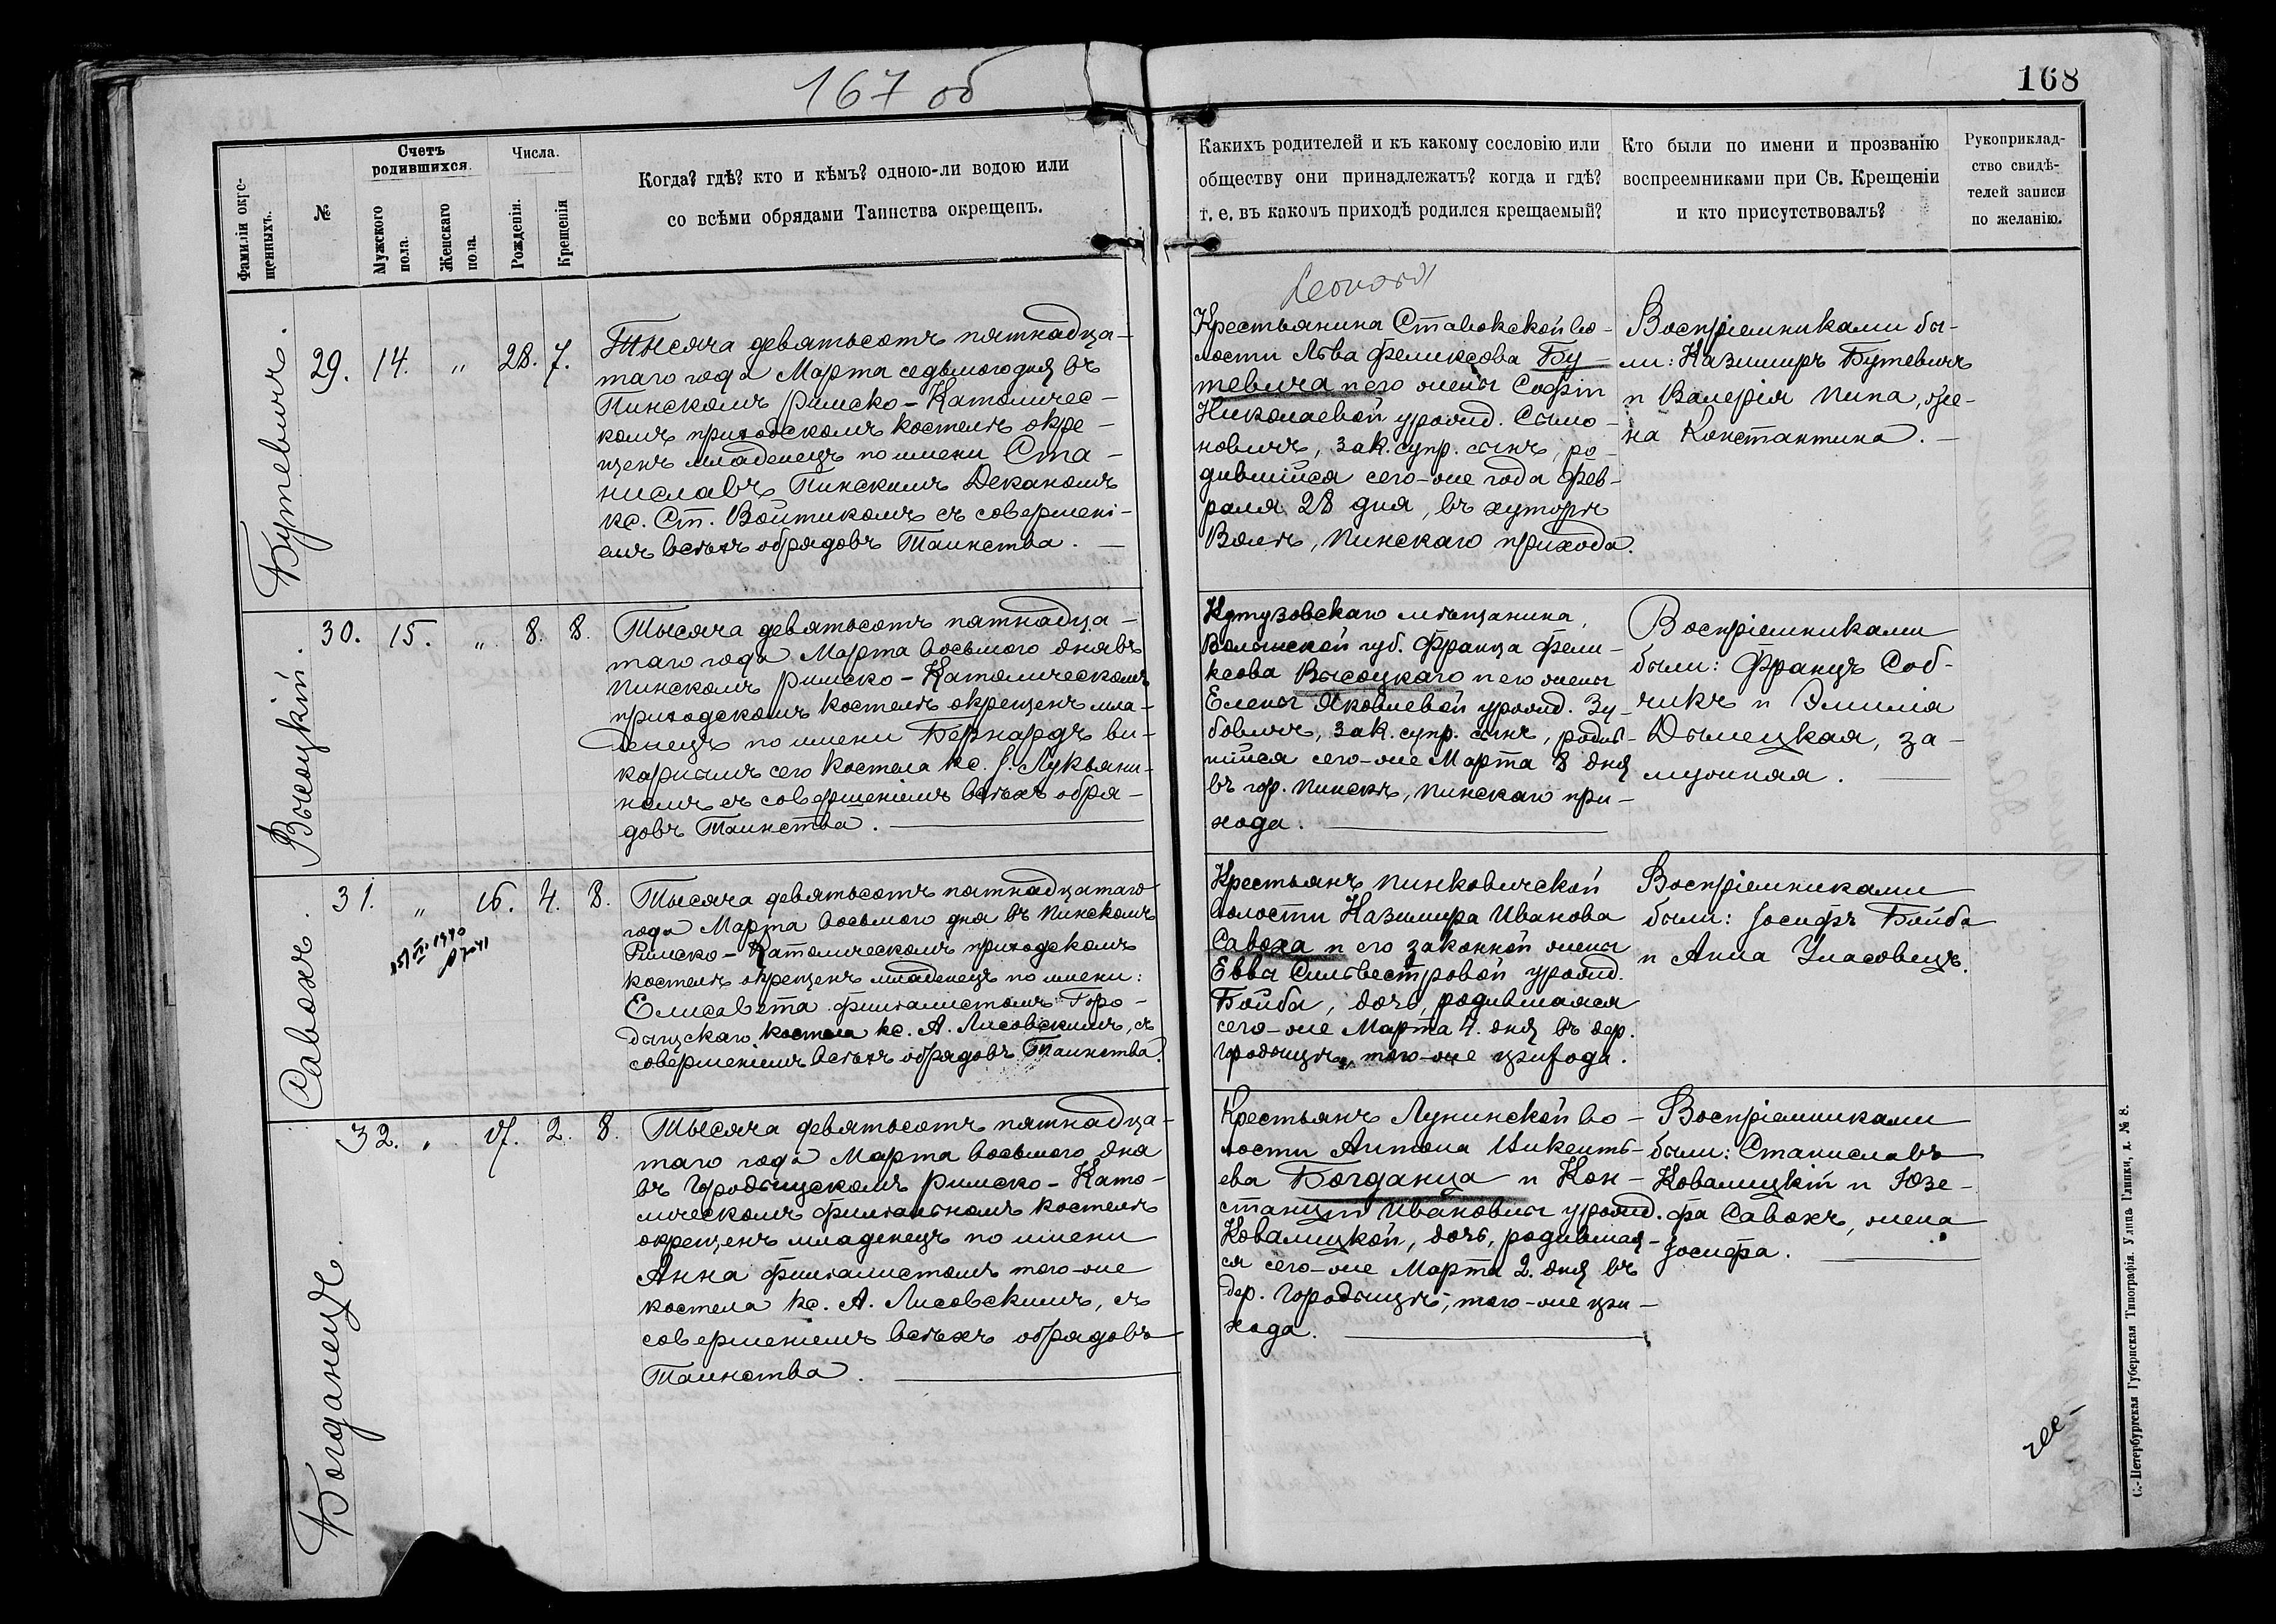 167 об
168
Фамиліи окре-
щенныхъ.
№
Счетъ
родившихся.
Мужского
пола.
Женскаго
пола.
Числа.
Рожденія.
Крещенія
Когда? гдѣ? кто и кѣмъ? одною-ли водою или
со всѣми обрядами Таинства окрещенъ.
Какихъ родителей и къ какому сословію или
обществу они принадлежатъ? когда и гдѣ?
т. е. въ какомъ приходѣ родился крещаемый?
Кто были по имени и прозванію
воспреемниками при Св. Крещеніи
и кто присутствовалъ?
Рукоприклад-
ство свидѣ-
телей записи
по желанію.
Бутевичъ.
29. 14. „ 28. 7.
Тысяча девятьсотъ пятнадца-
таго года Марта седьмого дня въ
Пинскомъ Римско-Католичес-
комъ приходскомъ костелѣ окре-
щенъ младенецъ по имени Ста-
ниславъ Пинскимъ Деканомъ
кс. Ст. Войтикомъ съ совершені-
емъ всѣхъ обрядовъ Таинства. —
Leonard
Крестьянина Ставокской во-
лости Льва Феликсова Бу-
тевича и его жены Софіи
Николаевой урожд. Сымо-
новичъ, зак. супр. сынъ, ро-
дившійся сего-же года Фев-
раля 28 дня, въ хуторѣ
Волѣ, Пинскаго прихода.
Воспріемниками бы-
ли: Казимиръ Бутевичъ
и Валерія Пипа, же-
на Константина. —
Высоцкій.
30. 15. „ 8. 8.
Тысяча девятьсотъ пятнадца-
таго года Марта восьмого дня въ
Пинскомъ Римско-Католическомъ
приходскомъ костелѣ окрещенъ мла-
денецъ по имени Бернардъ ви-
каріемъ сего костела кс. І. Лукьяни-
номъ съ совершеніемъ всѣхъ обря-
довъ Таинства. —
Кутузовскаго мѣщанина,
Волынской губ. Франца Фели-
ксова Высоцкаго и его жены
Елены Яковлевой урожд. Зу-
бовичъ, зак. супр. сынъ, родив-
шійся сего-же Марта 8 дня
въ гор. Пинскѣ, Пинскаго при-
хода. —
Воспріемниками
были: Францъ Соб-
чикъ и Эмилія
Дымецкая, за-
мужняя. —
Савохъ.
31. „ 16. 4. 8.
Тысяча девятьсотъ пятнадцатаго
года Марта восьмого дня въ Пинскомъ
Римско-Католическомъ приходскомъ
костелѣ окрещенъ младенецъ по имени:
Елисавета филіалистомъ Горо-
дыщскаго костела кс. А. Лисовскимъ, съ
совершеніемъ всѣхъ обрядовъ Таинства.
Крестьянъ Пинковичской
волости Казимира Иванова
Савоха и его законной жены
Еввы Сильвестровой урожд.
Бойба, дочь, родившаяся
сего-же Марта 4. дня въ дер.
Городыщѣ, того-же прихода.
Воспріемниками
были: Іосифъ Бойба
и Анна Уласовецъ.
Богданецъ.
32. „ 17. 2. 8.
Тысяча девятьсотъ пятнадца-
таго года Марта восьмого дня
въ Городыщскомъ Римско-Като-
лическомъ филіальномъ костелѣ
окрещенъ младенецъ по имени
Анна филіалистомъ того-же
костела кс. А. Лисовскимъ, съ
совершеніемъ всѣхъ обрядовъ
Таинства. —
Крестьянъ Лунинской во-
лости Антона Викенть-
ева Богданца и Кон-
станціи Ивановны урожд.
Ковалицкой, дочь, родившая-
ся сего-же Марта 2. дня въ
дер. Городыщѣ, того-же при-
хода. —
Воспріемниками
были: Станиславъ
Ковалицкій и Юзе-
фа Савохъ, жена
Іосифа. —
С.-Петербургская Губернская Типографія. Улица Глинки, д. № 8.